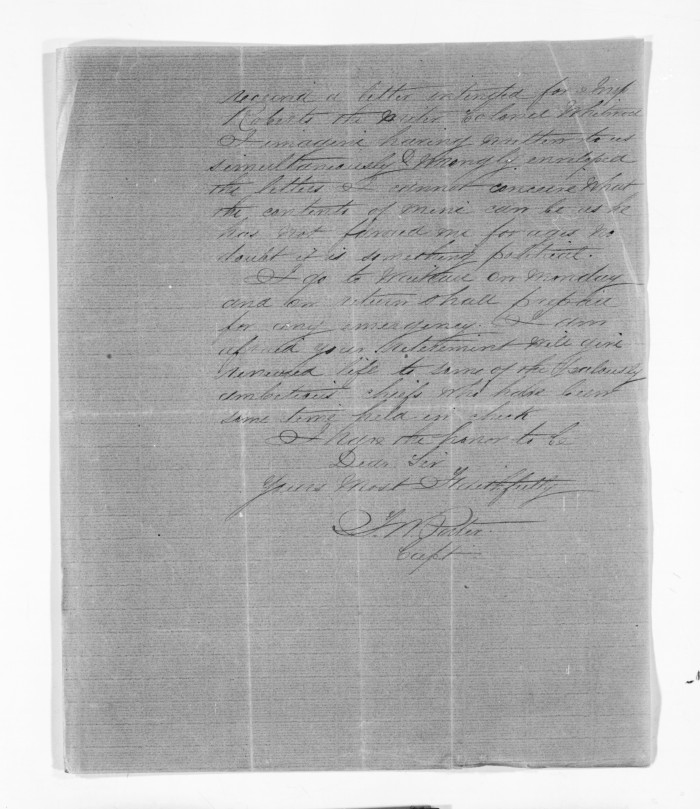 received a letter intended for Major
Roberts the writer Colonel Whitmore
I imagine having written to us
simultaneously & wrongly enveloped
the letters I cannot conceive what
the contents of mine can be as he
has not favored me for ages no
doubt it is something political.
I go to on Monday
and on return shall prepare
for any emergency. I am
afraid your retirement will give
renewed life to some of the Jealously
ambitious chiefs who have been
some time held in check
I have the honor to be
Dear Sir
Yours Most Faithfully
J. W. Porter
Capt